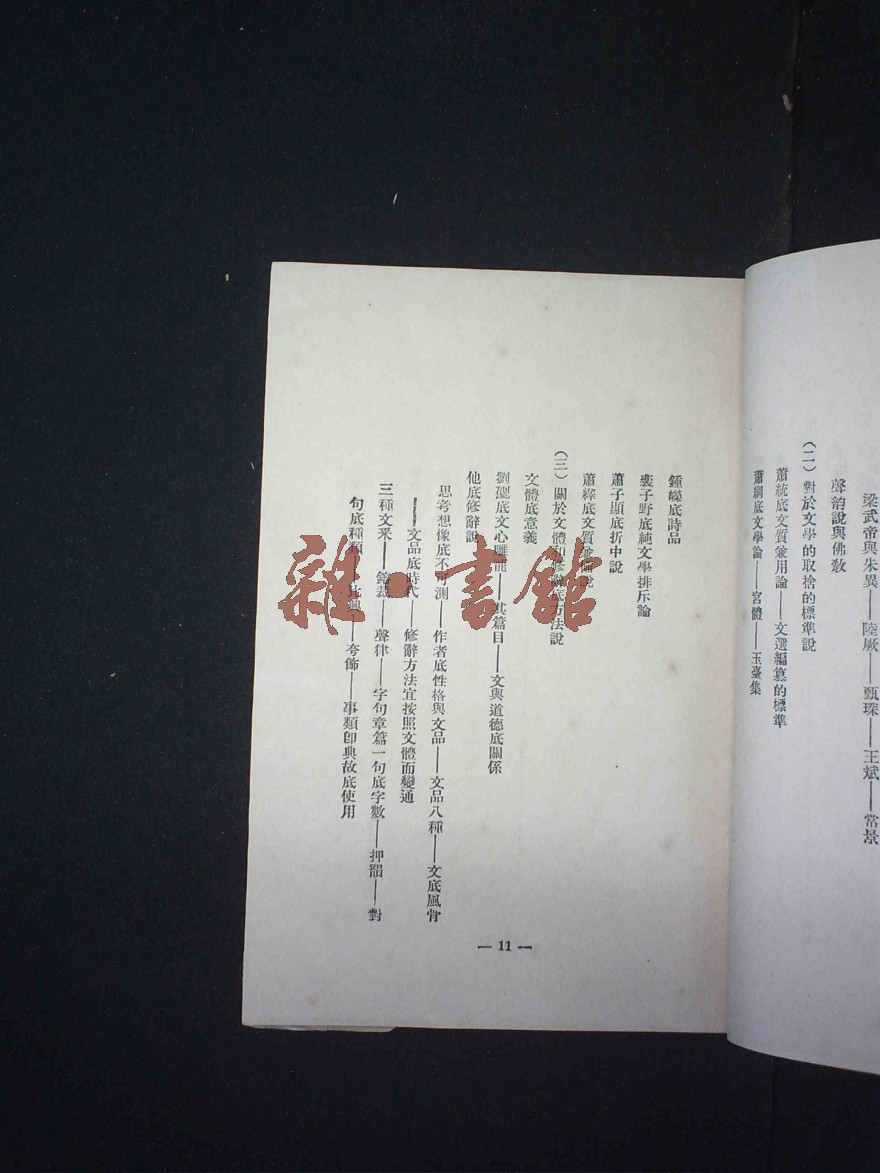 梁武帝與朱异——陸厥——甄琛——王斌——常景
聲韵說與佛敎
（二）對於文學的取捨的標準說
蕭統底文質兼用論——文選編纂的標準
蕭綱底文學論——宮體——玉臺集
鍾嶸底詩品
裴子野底純文學排斥論
蕭子顯底折中說
蕭繹底文質兼備說
（三）關於文體和修辭底方法說
文體底意義
劉勰底文心雕龍——其篇目——文與道德底關係
他底修辭說
思考想像底不可測——作者底性格與文品——文品八種——文底風骨
——文品底時代——修辭方法宜按照文體而變通
三種文釆——鎔裁——聲律——字句章篇一句底字數——押韻——對
句底種類——比興——夸飾——事類卽典故底使用
— 11 —
雜·書館